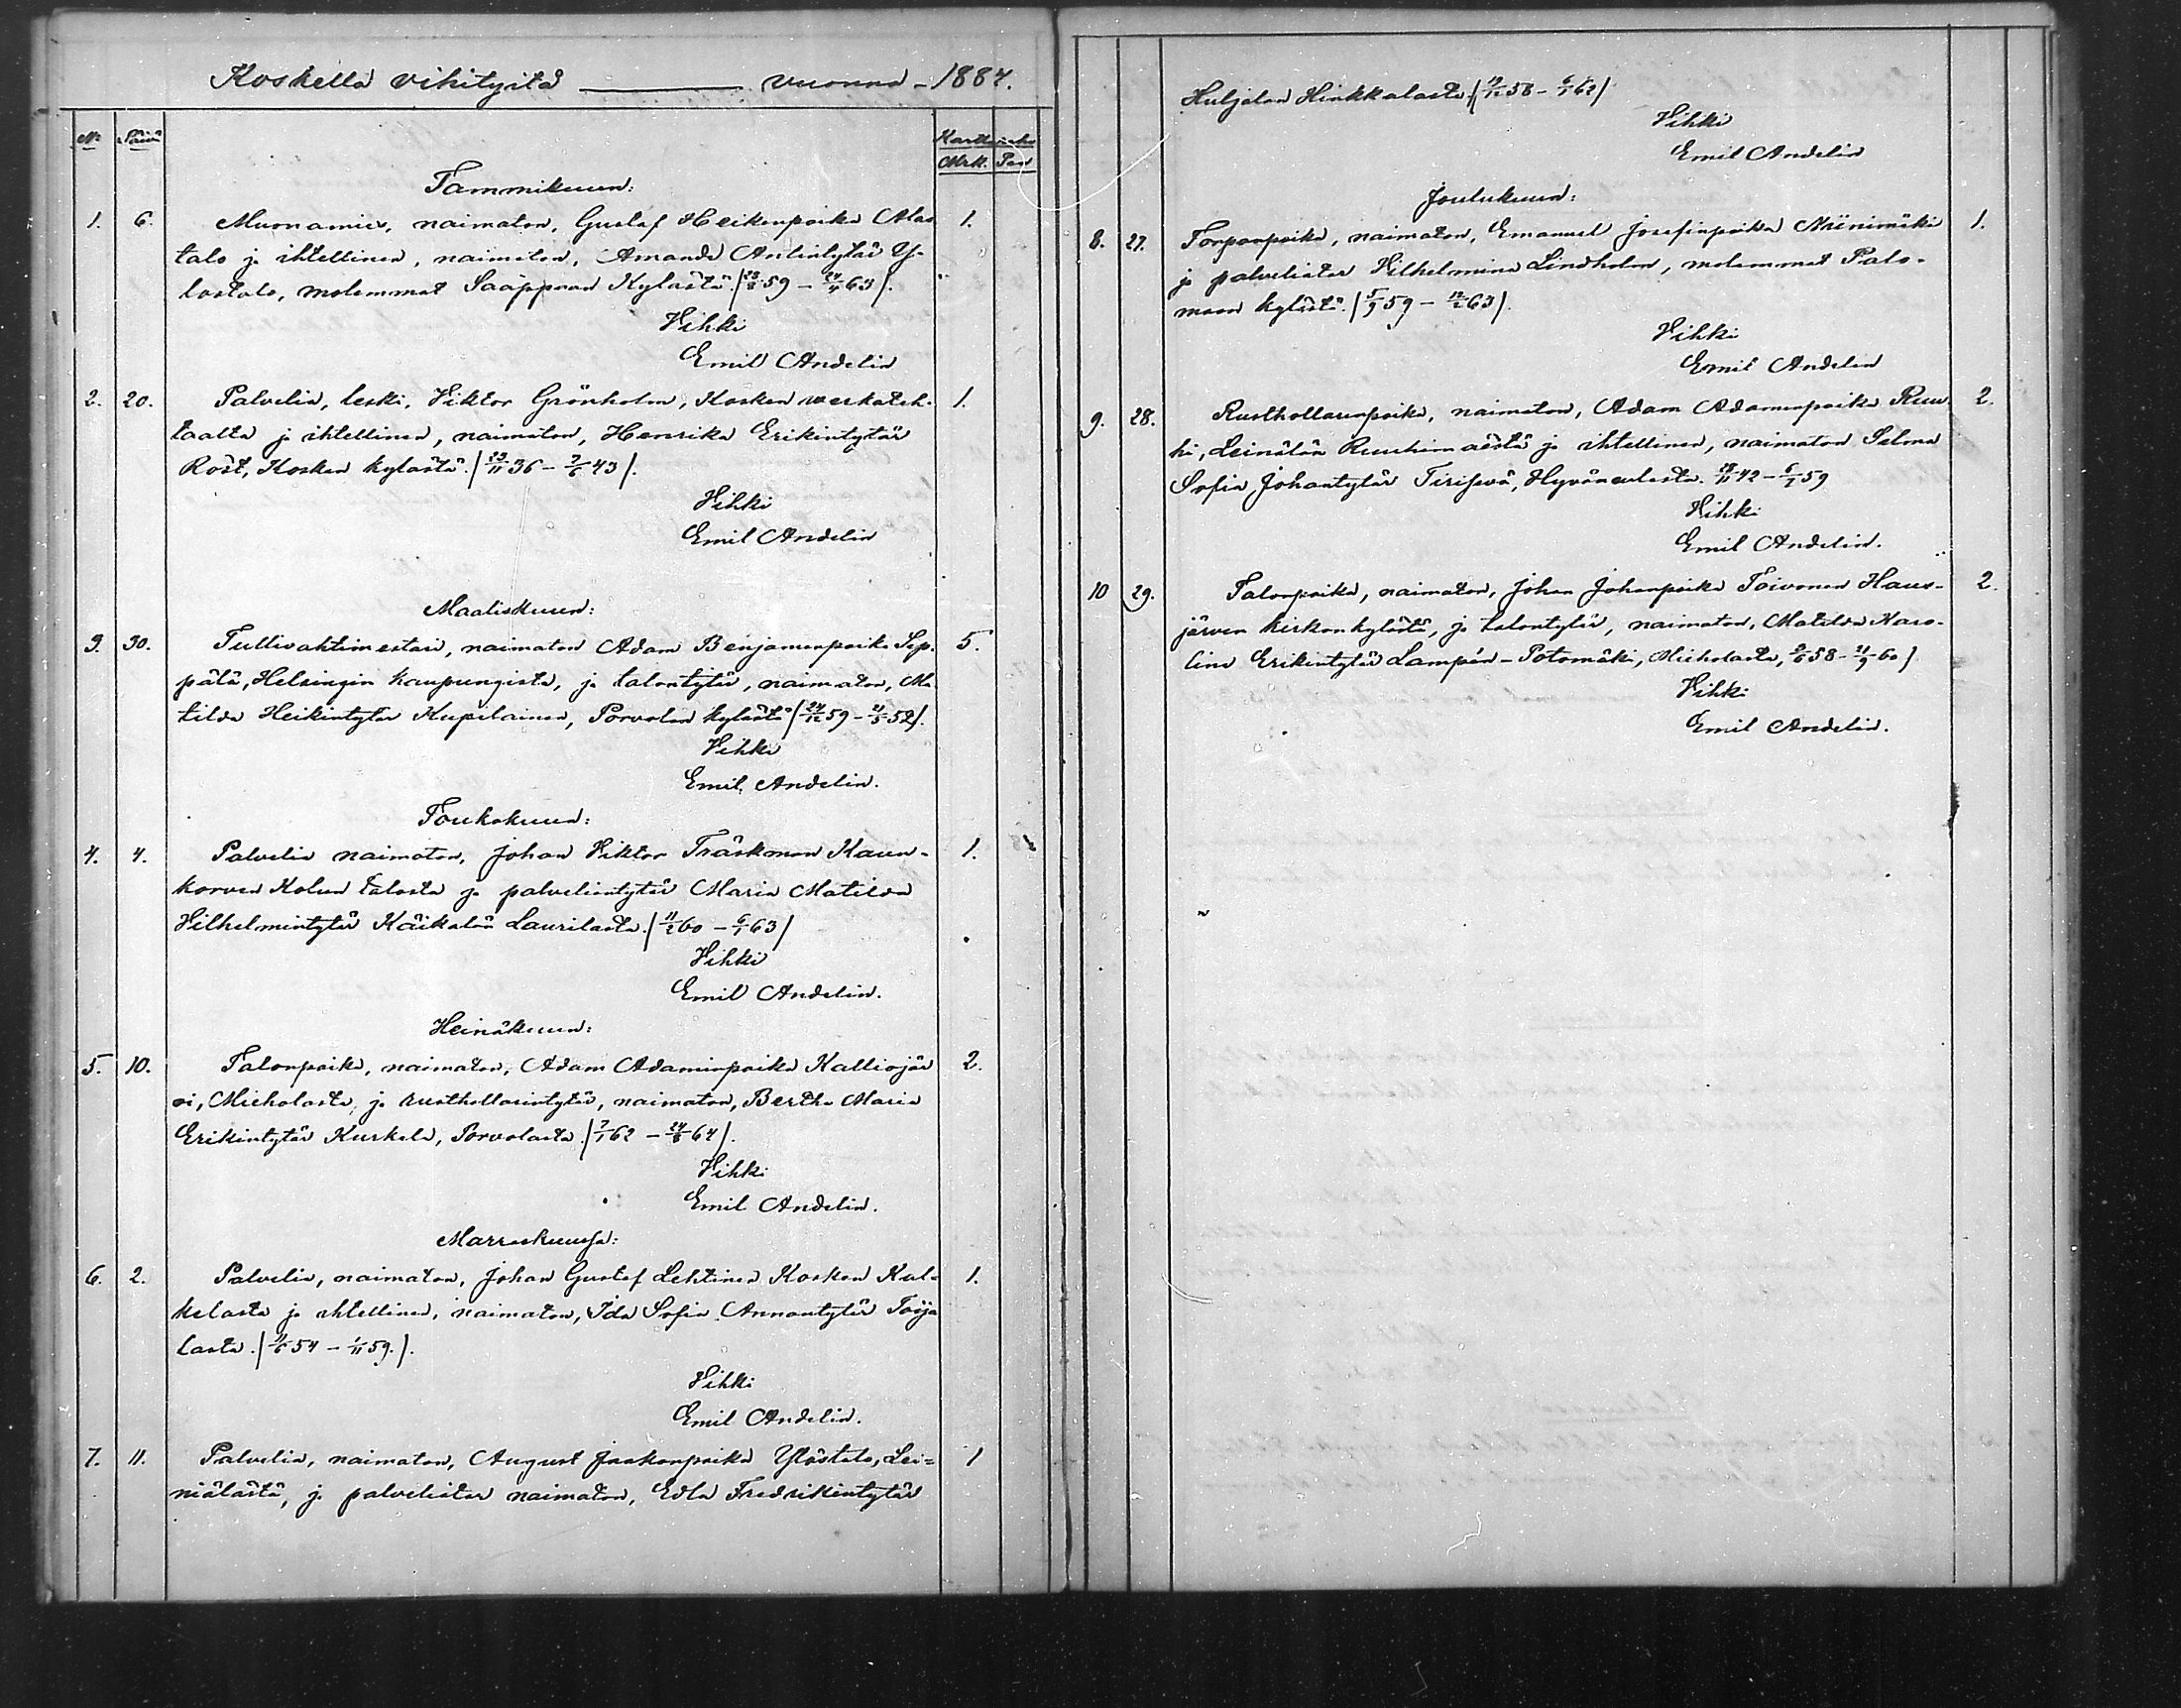 Koskella vihityitä ——— vuonna – 1884.
No Päivä
Mrk.
Tammikuun:
1. 6. Muonamies, naimaton, Gustaf Heikinpoika Alas 1.
talo ja ihtellinen, naimaton, Amanda Antintytär Y-
löstalo, molemmat Sääppään Kylästä. (28/8 59 – 24/4 63).
Vihki
Emil Andelin
2. 20. Palvelia, leski, Viktor Grönholm, Kosken verkateh- 1.
taalta ja ihtellinen, naimaton, Henrika Erikintytär
Röst, Kosken kylästä. (23/11 36 – 7/6 43).
Vihki
Emil Andelin
Maaliskuun:
3. 30. Tullivahtimestari, naimaton Adam Benjaminpoika Sep- 5.
pälä, Helsingin kaupungista, ja talontytär, naimaton, Ma
tilda Heikintytär Kupilainen, Porvolan kylästä (24/12 59 – 21/5 52).
Vihki
Emil Andelin.
Toukokuun:
4. 4. Palvelia naimaton, Johan Viktor Träskman Kaun- 1.
korven Kolun talosta ja palveliantytär Maria Matilda
Vilhelmintytär Käikälän Laurilasta. (11/2 60 – 6/1 63)
Vihki
Emil Andelin.
Heinäkuun:
5. 10. Talonpoika, naimaton, Adam Adaminpoika Kalliojär 2.
vi, Mieholasta, ja rusthollarintytär, naimaton, Bertha Maria
Erikintytär Kurkela, Porvolasta. (7/1 62 – 24/8 64).
Vihki
Emil Andelin.
Marraskuussa:
6. 2. Palvelia, naimaton, Johan Gustaf Lehtinen Kosken Kul- 1.
kelasta ja ihtellinen, naimaton, Ida Sofia Annantytär Toija
lasta. (11/6 54 – 1/11 59.).
Vihki
Emil Andelin.
7. 11. Palvelia, naimaton, August Jaakonpoika Ylöstalo, Lei= 1
niälästä, ja palveliatar naimaton, Edla Fredrikintytär
Huljalan Hinkkalasta. (19/12 58 – 6/1 62)
Vihki
Emil Andelin
Joulukuun:
8. 27. Torpanpoika, naimaton, Emanuel Josefinpoika Niinimäki 1.
ja palveliatar Vilhelmina Lindholm, molemmat Palo-
maan kylästä. (5/9 59 – 12/2 63).
Vihki
Emil Andelin
9. 28. Rusthollarinpoika, naimaton, Adam Adaminpoika Ruu 2.
hi, Leinälän Ruuhimäestä ja ihtellinen, naimaton Selma
Sofia Johantytär Hyväneulasta. 28/11 42 – 6/1 59
Vihki
Emil Andelin.
10 29. Talonpoika, naimaton, Johan Johanpoika Toivonen Haus- 2.
järven kirkonkylästä, ja talontytär, naimaton, Matilda Karo-
lina Erikintytär Lampén – Potomäki, Mieholasta, 2/6 58 – 21/9 60)
Vihki
Emil Andelin.